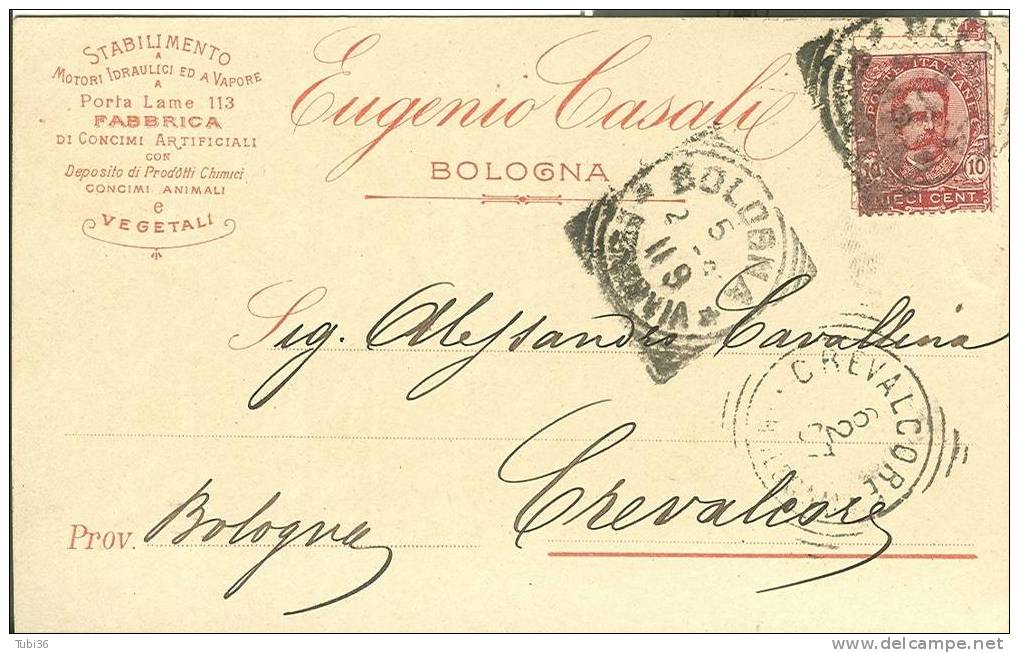 STABILIMENTO
A
MOTORI IDRAULICI ED A VAPORE
A
Porta Lame 113
FABBRICA
DI CONCIMI ARTIFICIALI
CON
Deposito di Prodotti Chimici
CONCIMI ANIMALI
e
VEGETALI
Eugenio Casali
BOLOGNA
POSTE ITALIANE
10 10
DIECI CENT.
BOLOGNA
5
2
119
Sig. Alessandro Cavallina
CREVALCORE
Crevalcore
Prov. Bologna
Tubi36
delcampe.net